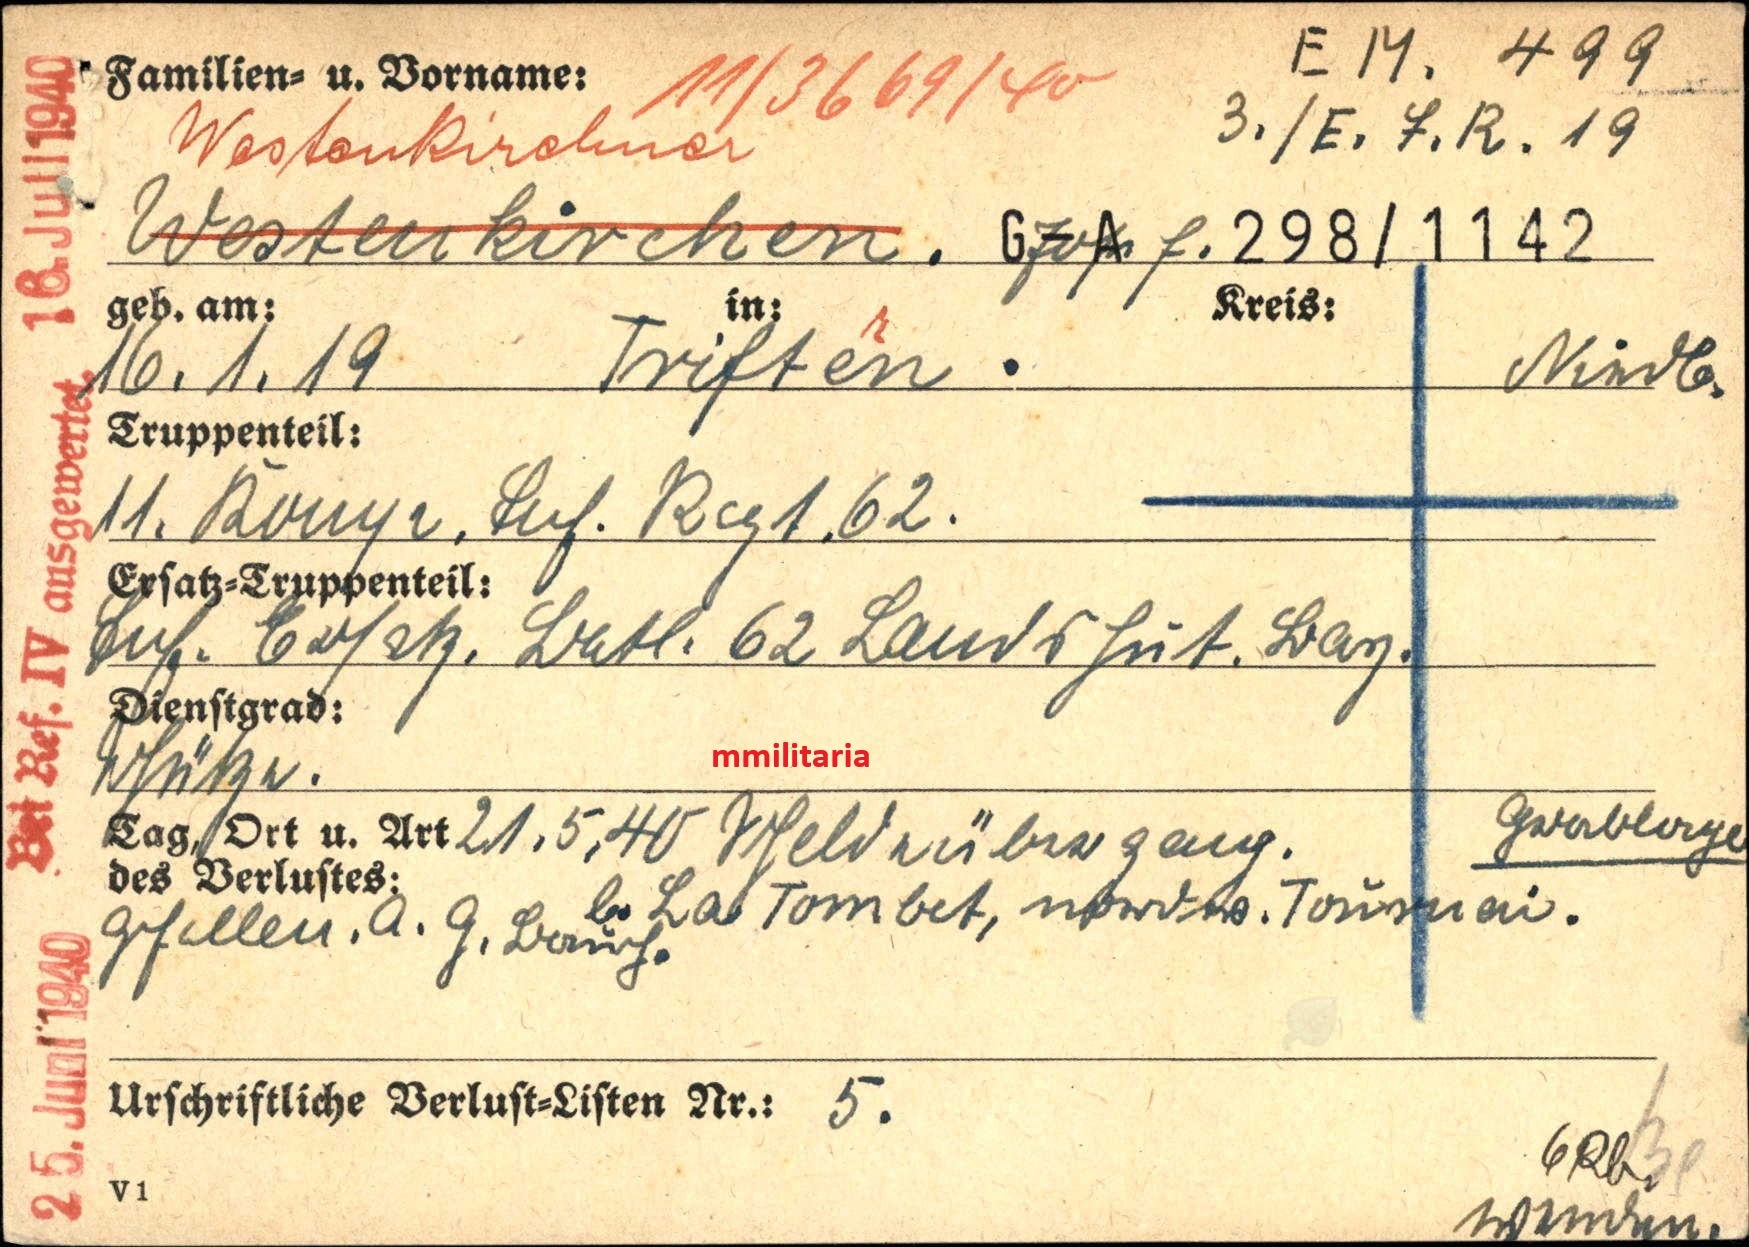 Familien= u. Vorname:
11/3669/40
E M. 499
3./E. J.R. 19
Westenkirchner
Westenkirchen. Josef.
G A 298/1142
geb. am: in: Kreis:
16.1.19 Triften r . Niedb.
Truppenteil:
11. Komp., Inf. Regt. 62.
Ersatz=Truppenteil:
Inf. Ersatz. Batl. 62 Landshut. Bay.
Dienstgrad:
Schütze.
mmilitaria
Tag, Ort u. Art 21.5.40 Scheldeübergang. Grablage
des Verlustes: b. La Tombet, nordw. Tournai.
Gefallen. A. G. Bauch.
Urschriftliche Verlust=Listen Nr.: 5.
V 1
wenden.
25. Juni 1940
Bei Ref. IV ausgewertet.
16. Juli 1940